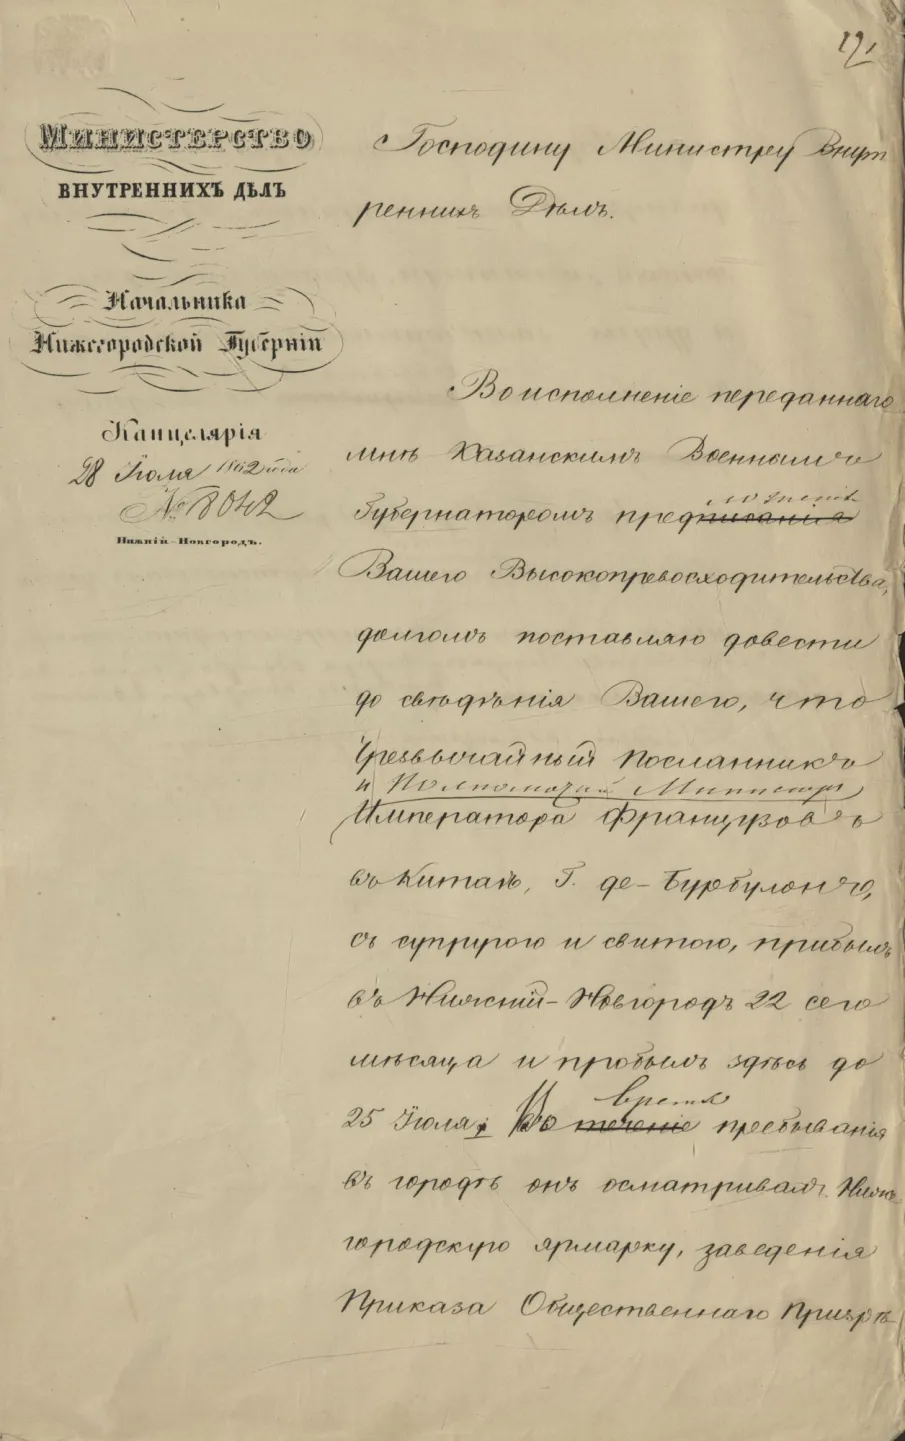 МИНИСТЕРСТВО
ВНУТРЕННИХЪ ДѢЛЪ
Начальника
Нижегородской Губернiи
Канцелярiя
28 Iюля 1862 года
№ 8042
Нижнiй-Новгородъ.
Господину Министру Внут
реннихъ Дѣлъ.
Во исполненiе переданнаго
мнѣ Казанскимъ Военнымъ
Губернаторомъ предписанiя
Вашего Высокопревосходительства,
долгомъ поставляю довести
до свѣдѣнiя Вашего, что
Чрезвычайный Посланникъ
и Полномочный Министръ
Императора Французовъ
въ Китаѣ, Г. де-Бурбулонъ,
съ супругою и свитою, прибылъ
въ Нижнiй-Новгородъ 22 сего
мѣсяца и пробылъ здѣсь до
25 Iюля; Во
время
теченiе пребыванiя
въ городѣ онъ осматривалъ Ниже
городскую ярмарку, заведенiя
Приказа Общественнаго Призрѣ